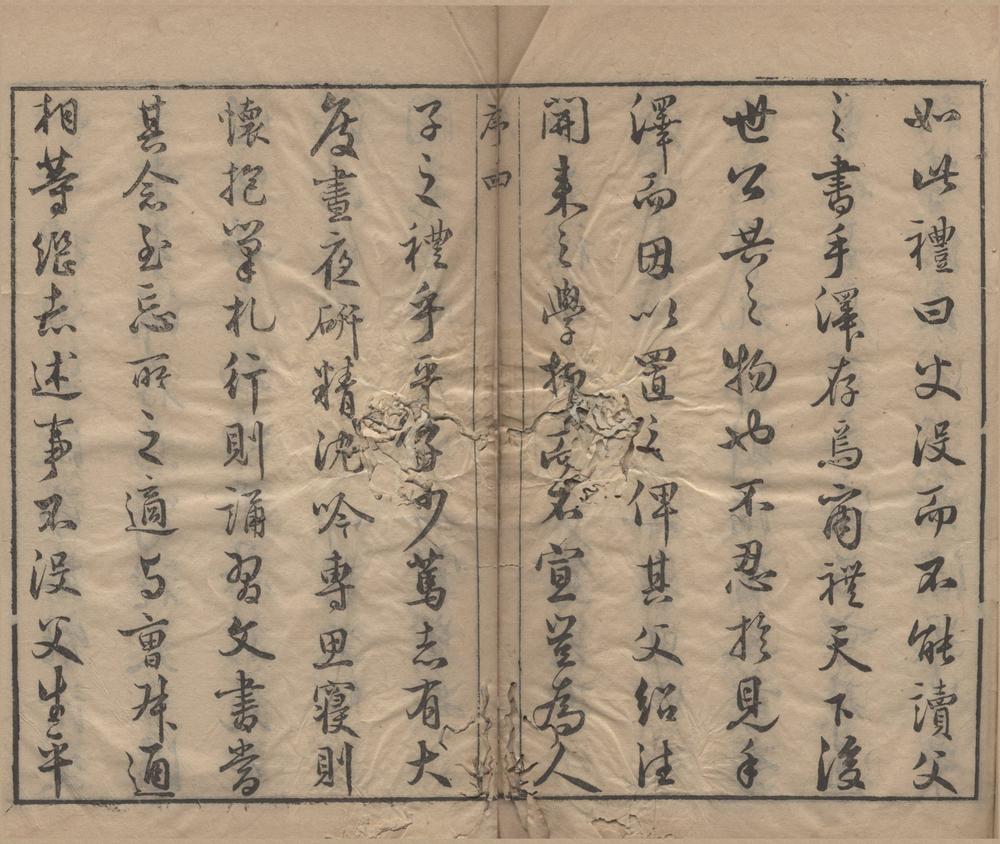 如此禮曰父沒而不能讀父
之書手澤存焉爾禮天下後
世公共之物也不忍於見手
澤而因以置之俾其父紹往
開來之學
名宣豈為人
序 四
子之禮乎平
少篤志有大
度晝夜研精沈吟專思寢則
懷抱筆札行則誦習文書當
其念至忘所之適與曹昇通
相等繼志述事不沒父生平